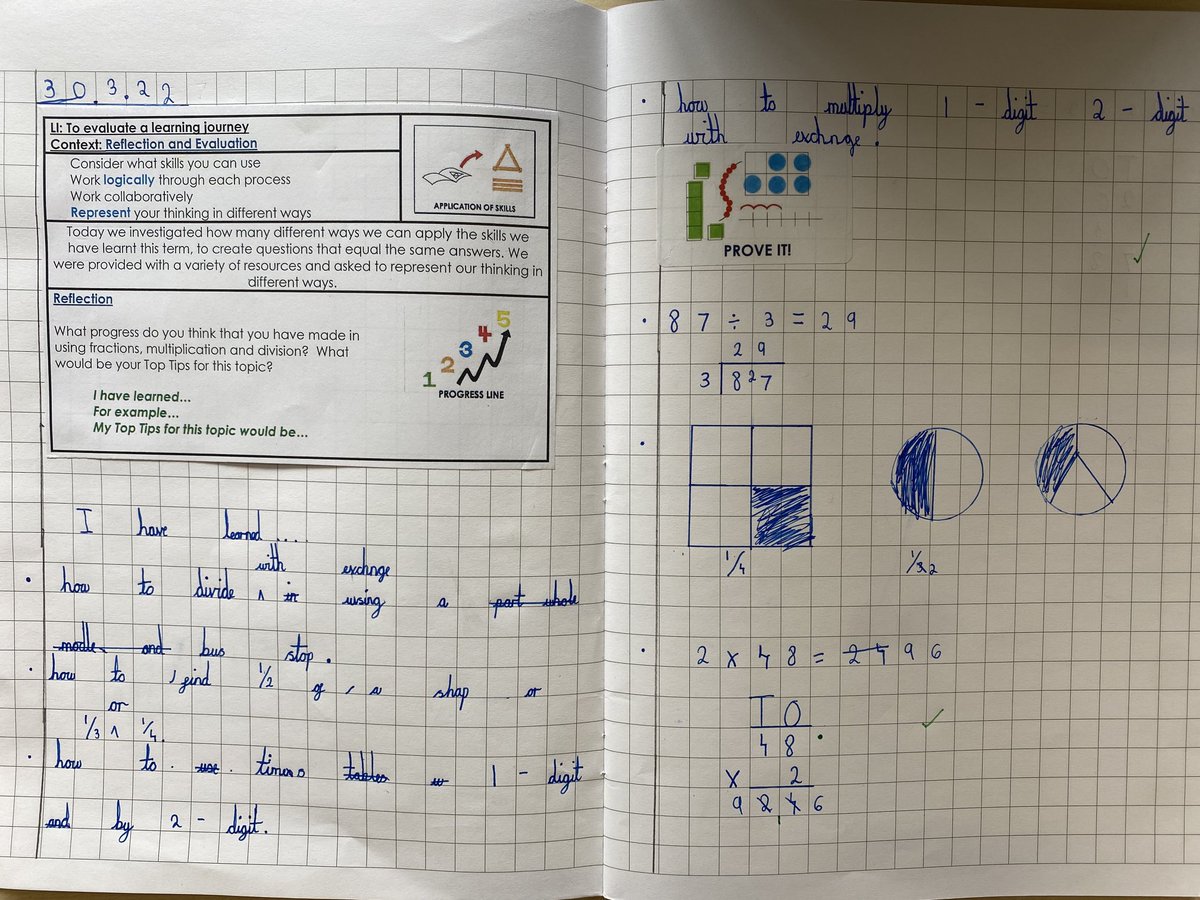 30.3.22
LI: To evaluate a learning journey
Context: Reflection and Evaluation
Consider what skills you can use
Work logically through each process
Work collaboratively
Represent your thinking in different ways
APPLICATION OF SKILLS
Today we investigated how many different ways we can apply the skills we
have learnt this term, to create questions that equal the same answers. We
were provided with a variety of resources and asked to represent our thinking in
different ways.
Reflection
What progress do you think that you have made in
using fractions, multiplication and division? What
would be your Top Tips for this topic?
I have learned...
For example...
My Top Tips for this topic would be...
1 2 3 4 5
PROGRESS LINE
I have learned....
with exchnge
• how to divide ^ in using a part whole
modle and bus stop.
• how to find 1/2 of a shap or
or
1/3 ^ 1/4.
• how to use times tables 1 - digit
and by 2 - digit.
• how to multiply 1 - digit 2 - digit
with exchnge.
PROVE IT!
• 87 ÷ 3 = 29
29
3 8 2 7
1/4
1/2
• 2 x 48 = 2496
TO
48
x 2
9 2 4 6